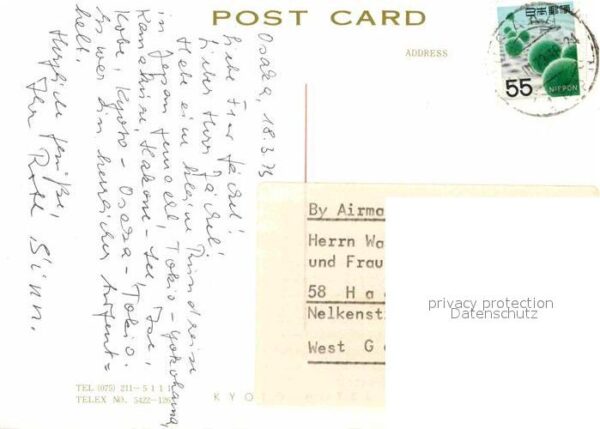 POST CARD
ADDRESS
日本郵便
55
NIPPON
Osaka, 18.3.73
Liebe Frau Jäckel!
Lieber Herr Jäckel!
Habe eine kleine Rundreise
in Japan gemacht. Tokio - Yokohama,
Kamakura, Hakone - See, Ise,
Kobe, Kyoto - Osaka - Tokio.
Es war ein herrlicher Aufent=
halt.
Herzliche Grüße,
Ihr
By Airma
Herrn Wa
und Frau
58 H a
Nelkenst
West G
privacy protection
Datenschutz
TEL (075) 211-5111
TELEX NO. 5422-126